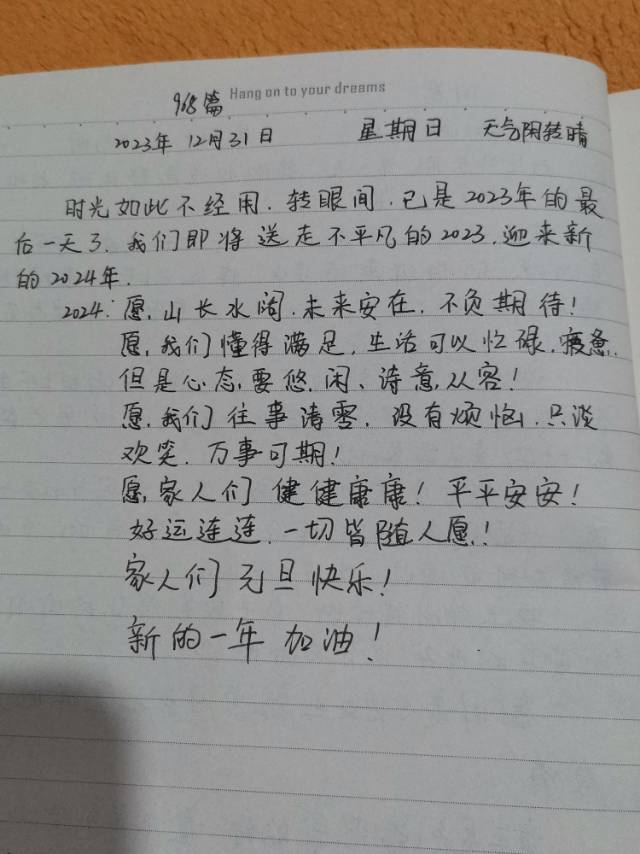 Hang on to your dreams
968篇
2023年 12月31日 星期日 天气阴转晴
时光如此不经用，转眼间，已是2023年的最
后一天了，我们即将送走不平凡的2023，迎来新
的2024年.
2024：愿，山长水阔，未来安在，不负期待！
愿，我们懂得满足，生活可以忙碌，疲惫，
但是心态，要悠，闲、诗意，从容！
愿，我们往事清零，没有烦恼，只谈
欢笑，万事可期！
愿，家人们 健健康康！平平安安！
好运连连，一切皆随人愿！
家人们 元旦快乐！
新的一年 加油！